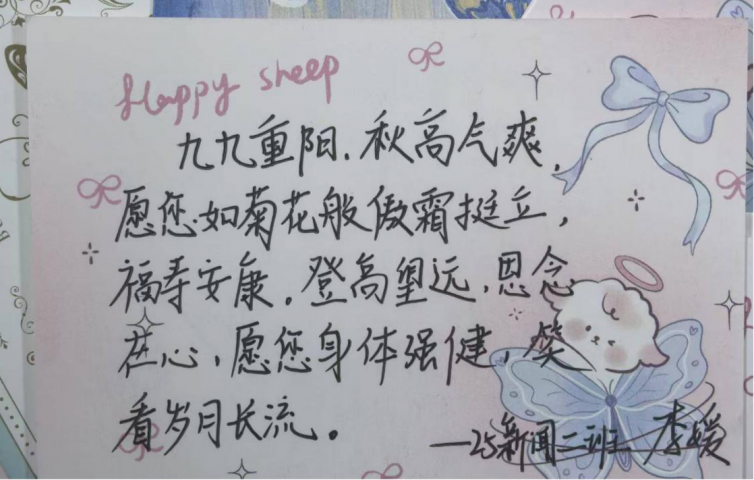 Happy sheep
九九重阳，秋高气爽，
愿您如菊花般傲霜挺立，
福寿安康。登高望远，恩念
在心，愿您身体强健，笑
看岁月长流。
—25新闻二班 李媛